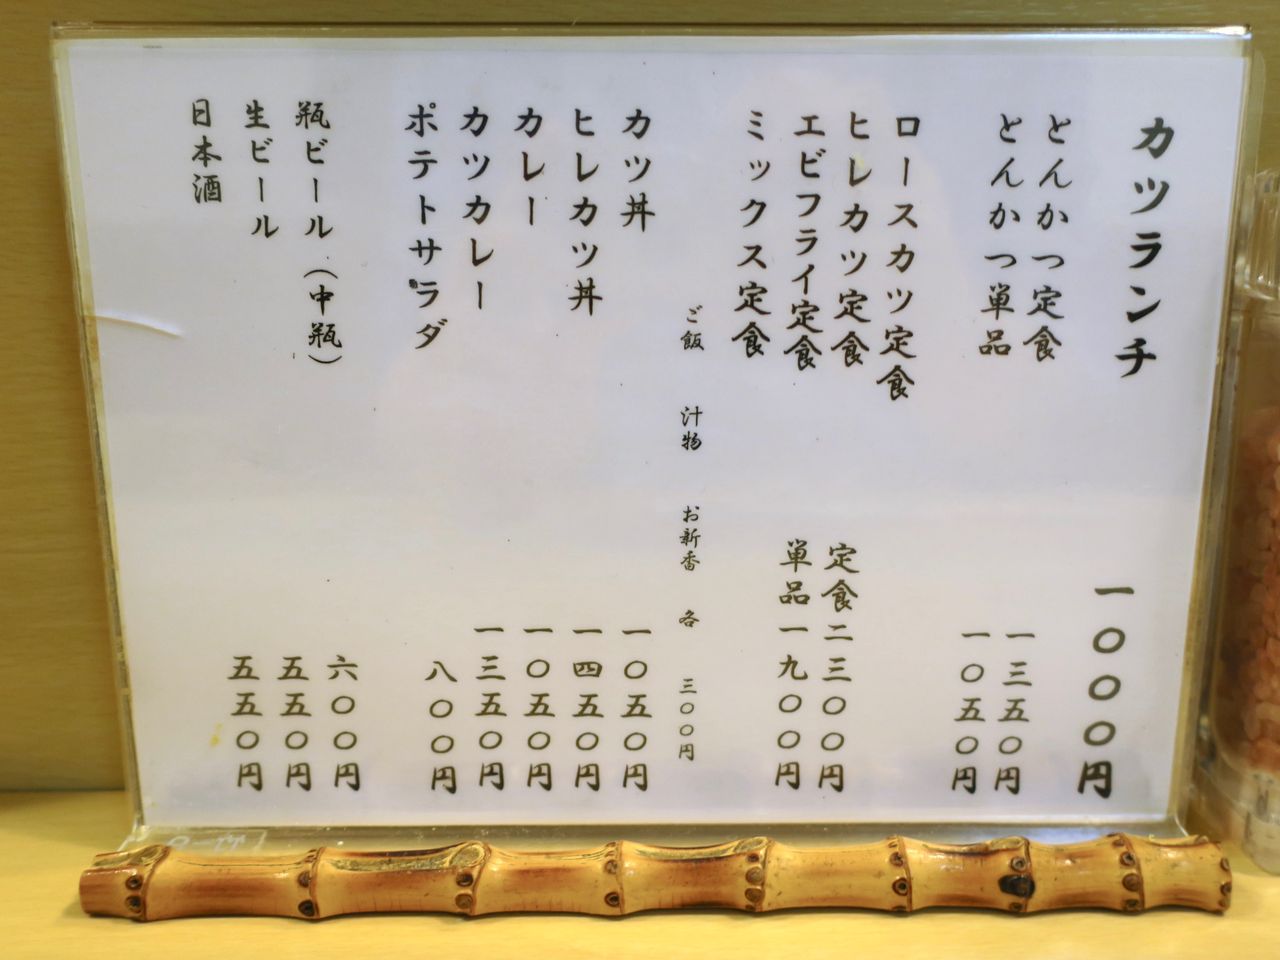 カツランチ 一〇〇〇円
とんかつ定食 一三五〇円
とんかつ単品 一〇五〇円
ロースカツ定食
ヒレカツ定食
エビフライ定食
ミックス定食
定食二三〇〇円
単品一九〇〇円
ご飯 汁物 お新香 各 三〇〇円
カツ丼 一〇五〇円
ヒレカツ丼 一四五〇円
カレー 一〇五〇円
カツカレー 一三五〇円
ポテトサラダ 八〇〇円
瓶ビール(中瓶) 六〇〇円
生ビール 五五〇円
日本酒 五五〇円